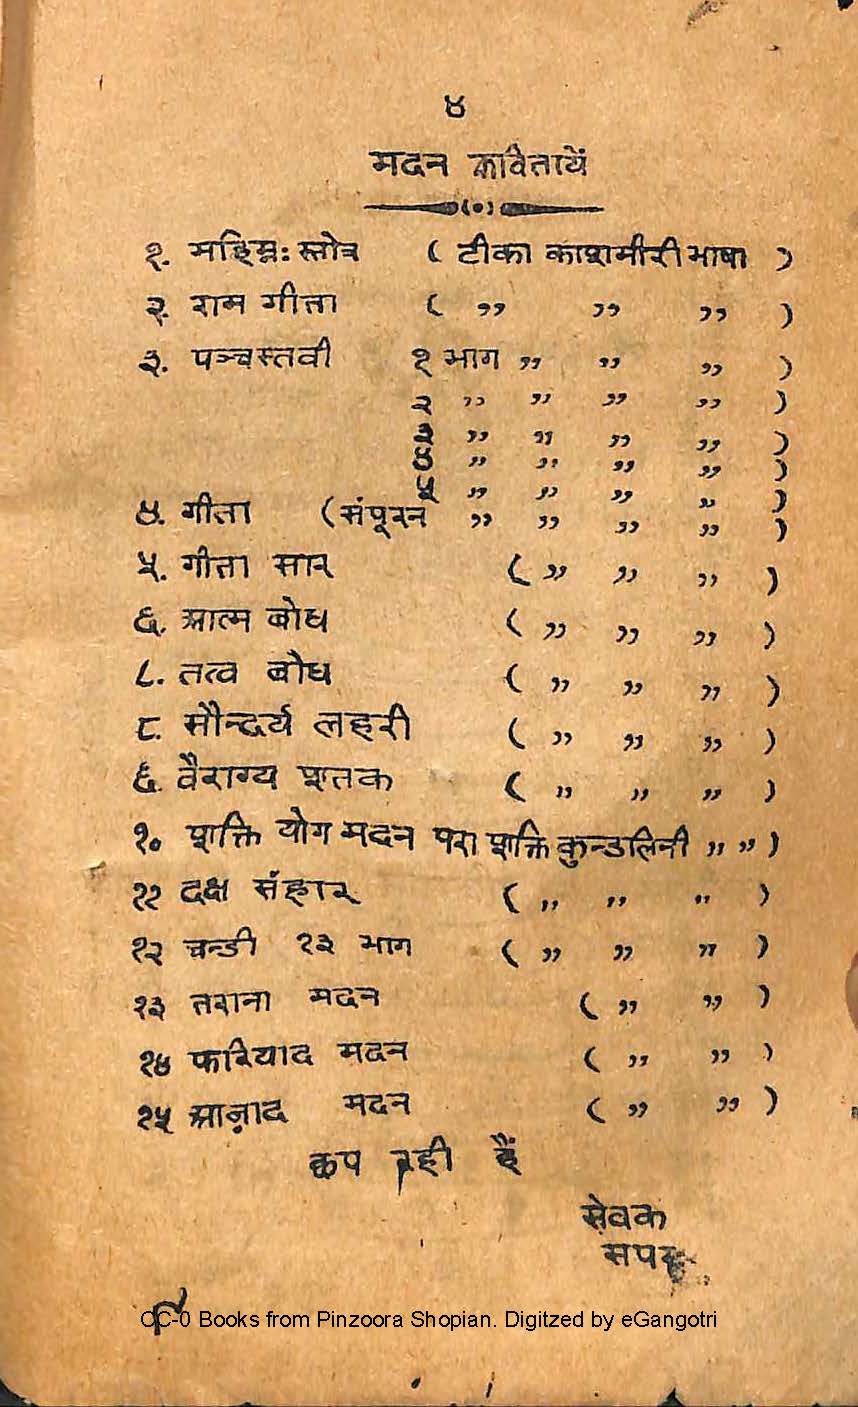 ४
मदन कवितायें
१. महिम्नः स्तोत्र ( टीका काशमीरी भाषा )
२. राम गीता ( ,, ,, ,, )
३. पञ्चस्तवी १ भाग ,, ,, ,, )
२ ,, ,, ,, ,, )
३ ,, ,, ,, ,, )
४ ,, ,, ,, ,, )
५ ,, ,, ,, ,, )
४. गीता (संपूरन ,, ,, ,, ,, )
५. गीता सार ( ,, ,, ,, )
६. आत्म बोध ( ,, ,, ,, )
८. तत्व बोध ( ,, ,, ,, )
८. सौन्दर्य लहरी ( ,, ,, ,, )
६. वैराग्य शतक ( ,, ,, ,, )
१० शक्ति योग मदन परा शक्ति कुन्डलिनी ,, ,, )
११ दक्ष संहार ( ,, ,, ,, )
१२ चन्डी १३ भाग ( ,, ,, ,, )
१३ तराना मदन ( ,, ,, )
१४ फरियाद मदन ( ,, ,, )
१५ आज़ाद मदन ( ,, ,, )
छप रही हैं
सेवक
CC-0 Books from Pinzoora Shopian. Digitzed by eGangotri